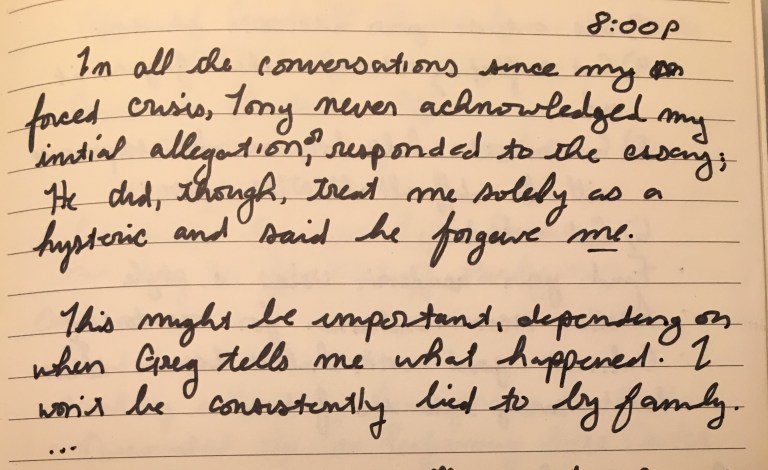 8:00p
In all the conversations since my
forced crisis, Tony never acknowledged my
initial allegation, or responded to the essay;
He did, though, treat me solely as a
hysteric and said he forgave me.
This might be important, depending on
when Greg tells me what happened. I
won't be consistently lied to by family.
...